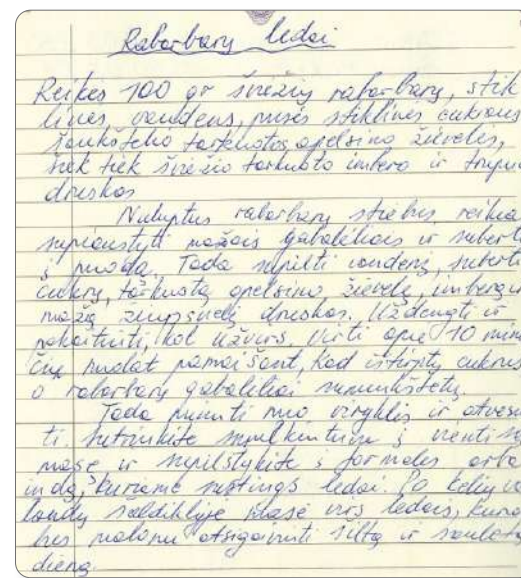 Rabarbarų ledai
Reikės 100 gr šviežių rabarbarų, stik
linės vandens, pusės stiklinės cukraus
šaukštelio tarkuotos apelsino žievelės,
šiek tiek šviežio tarkuoto imbero ir trupu
druskos
Nuluptus rabarbarų stiebus reikia
supiaustyti mažais gabalėliais ir suberti
į puodą. Tada supilti vandenį, suberti
cukrų, tarkuotą apelsino žievelę, imberą ir
mažą žiupsnelį druskos. Uždengti ir
pakaitinti, kol užvirs. Virti apie 10 minu
čių nuolat pamaišant, kad ištirptų cukrus
o rabarbarų gabalėliai suminkštėtų.
Tada nuimti nuo viryklės ir atvėsin
ti. Sutrinkite smulkintuvu į vientisą
masę ir supilstykite į formeles arba
indą, kuriame sustings ledai. Po kelių va
landų šaldiklyje masė virs ledais, kuria
bus malonu atsigaivinti šiltą ir saulėtą
dieną.